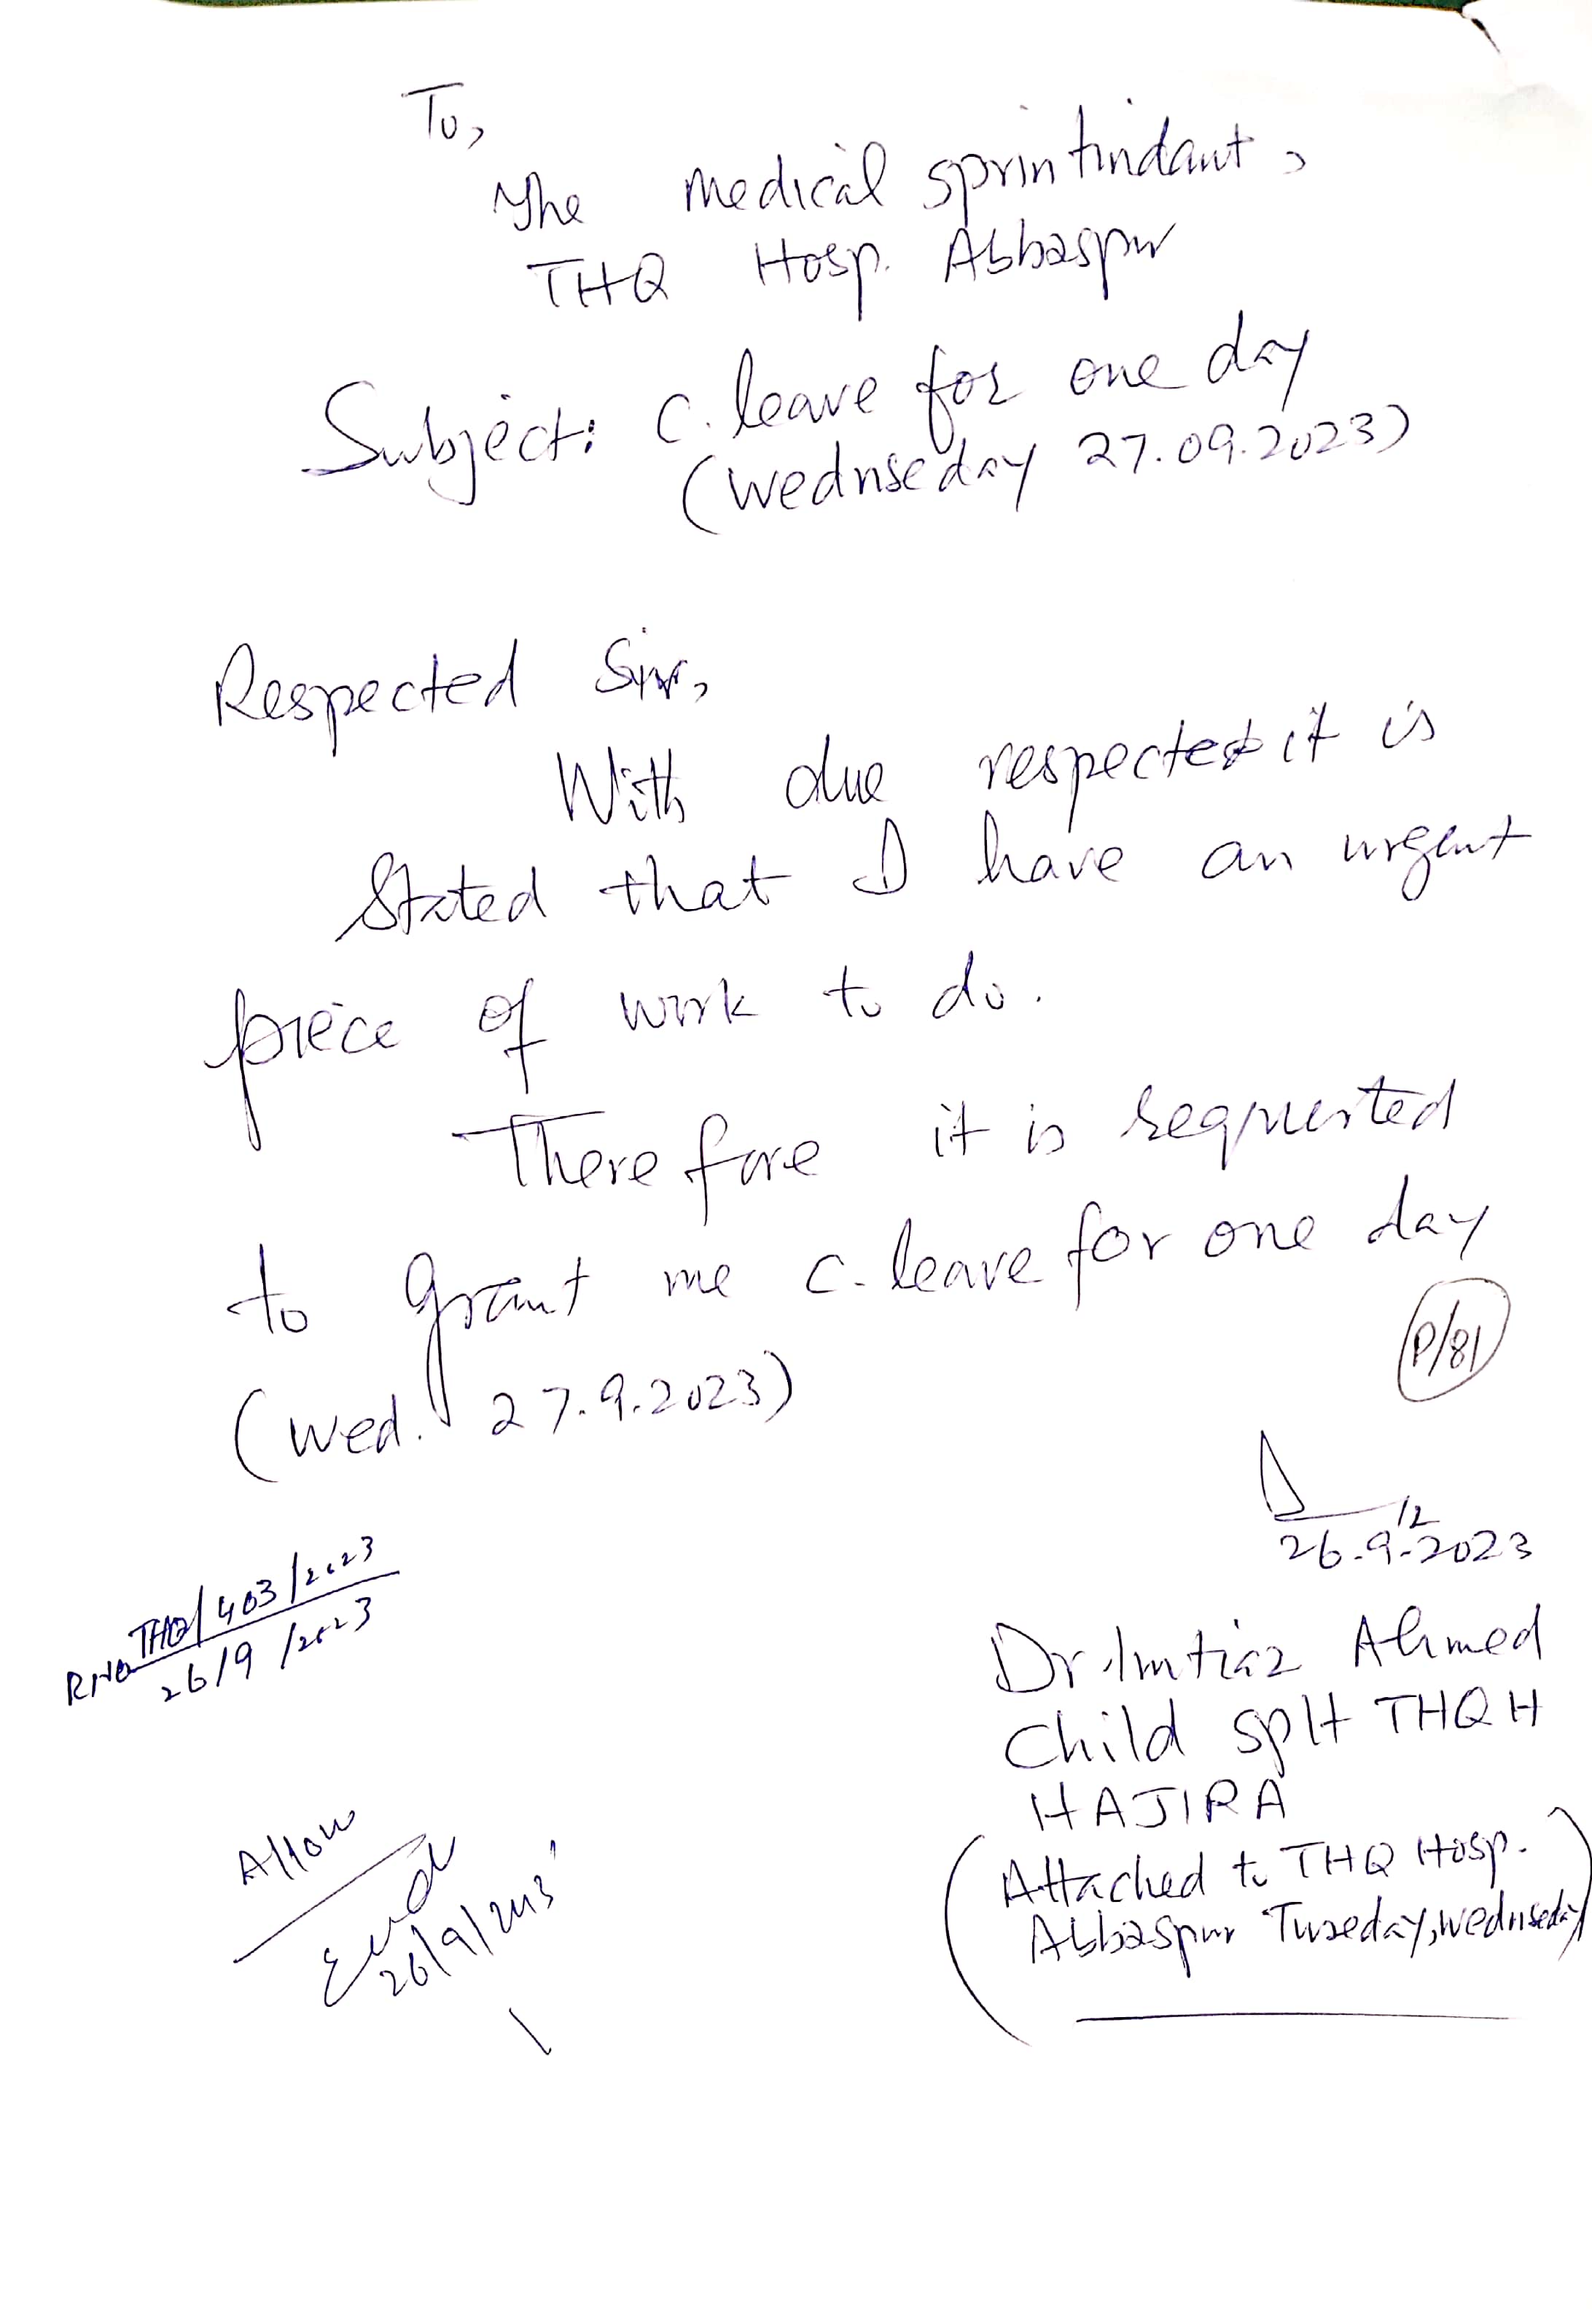 To,
The medical sprintindant,
THQ Hosp. Abbaspur
Subject: C. leave for one day
(wednseday 27.09.2023)
Respected Sir,
With due respected it is
stated that I have an urgent
piece of work to do.
Therefore it is requested
to grant me C. leave for one day
(wed. 27.9.2023)
P/81
26.9.2023
RNO THQ/403/2023
26/9/2023
Dr Imtiaz Ahmed
Child splt THQH
HAJIRA
(Attached to THQ Hosp.
Abbaspur Tuseday, wednseday)
Allow
26/9/2023